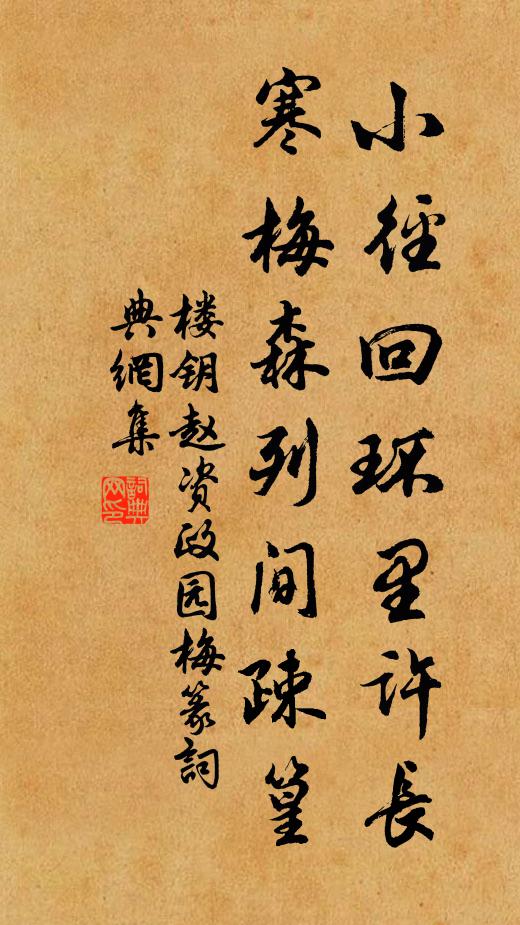 小径回环里许长
寒梅森列间疎篁
楼钥赵资政园梅篆詞
典網集
詞典網印